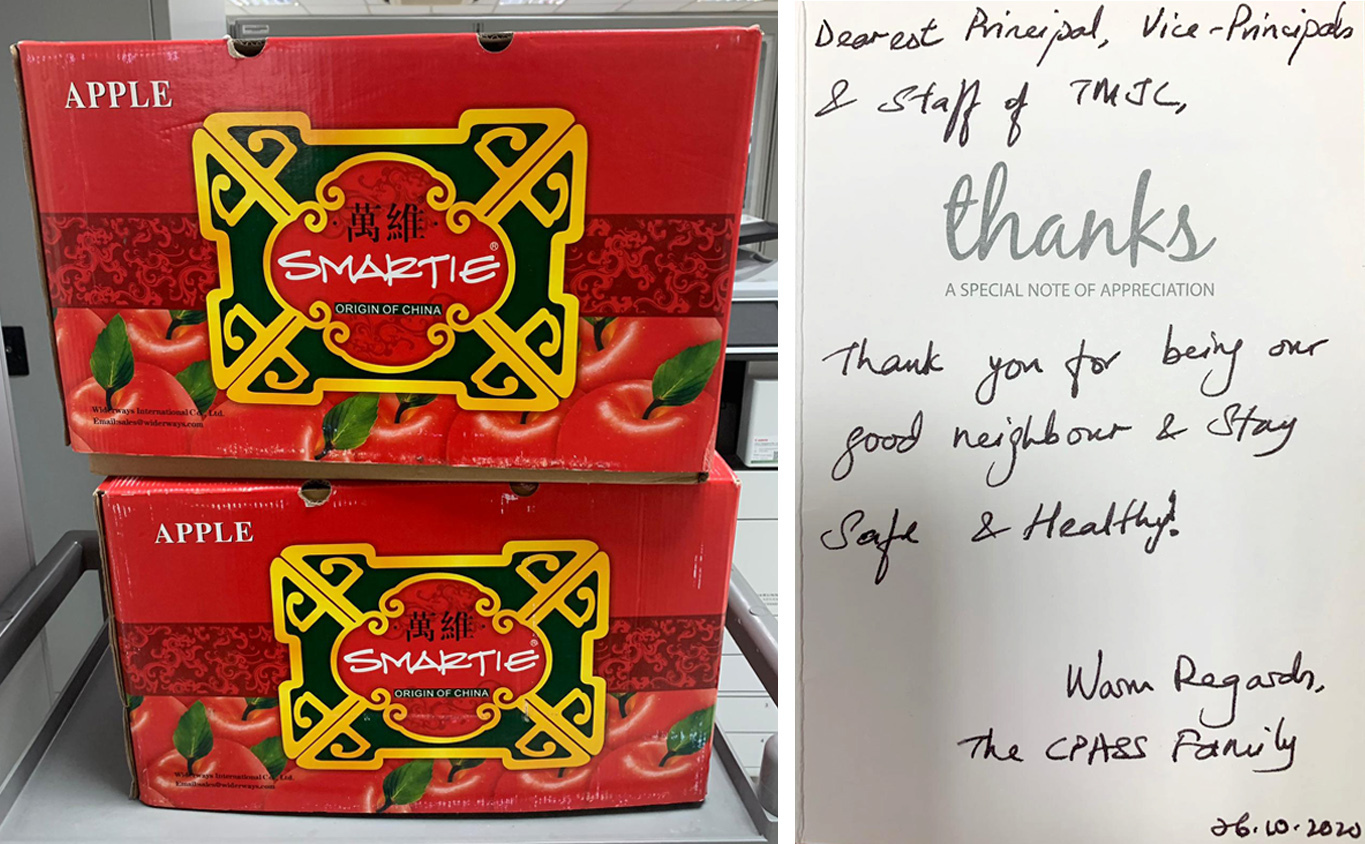 APPLE
萬維
SMARTIE®
ORIGIN OF CHINA
Widerways International Co., Ltd.
Email:sales@widerways.com
APPLE
萬維
SMARTIE®
ORIGIN OF CHINA
Widerways International Co., Ltd.
Email:sales@widerways.com
Dearest Principal, Vice-Principals
& Staff of TMJC,
thanks
A SPECIAL NOTE OF APPRECIATION
Thank you for being our
good neighbour & Stay
Safe & Healthy!
Warm Regards,
The CPASS Family
26.10.2020